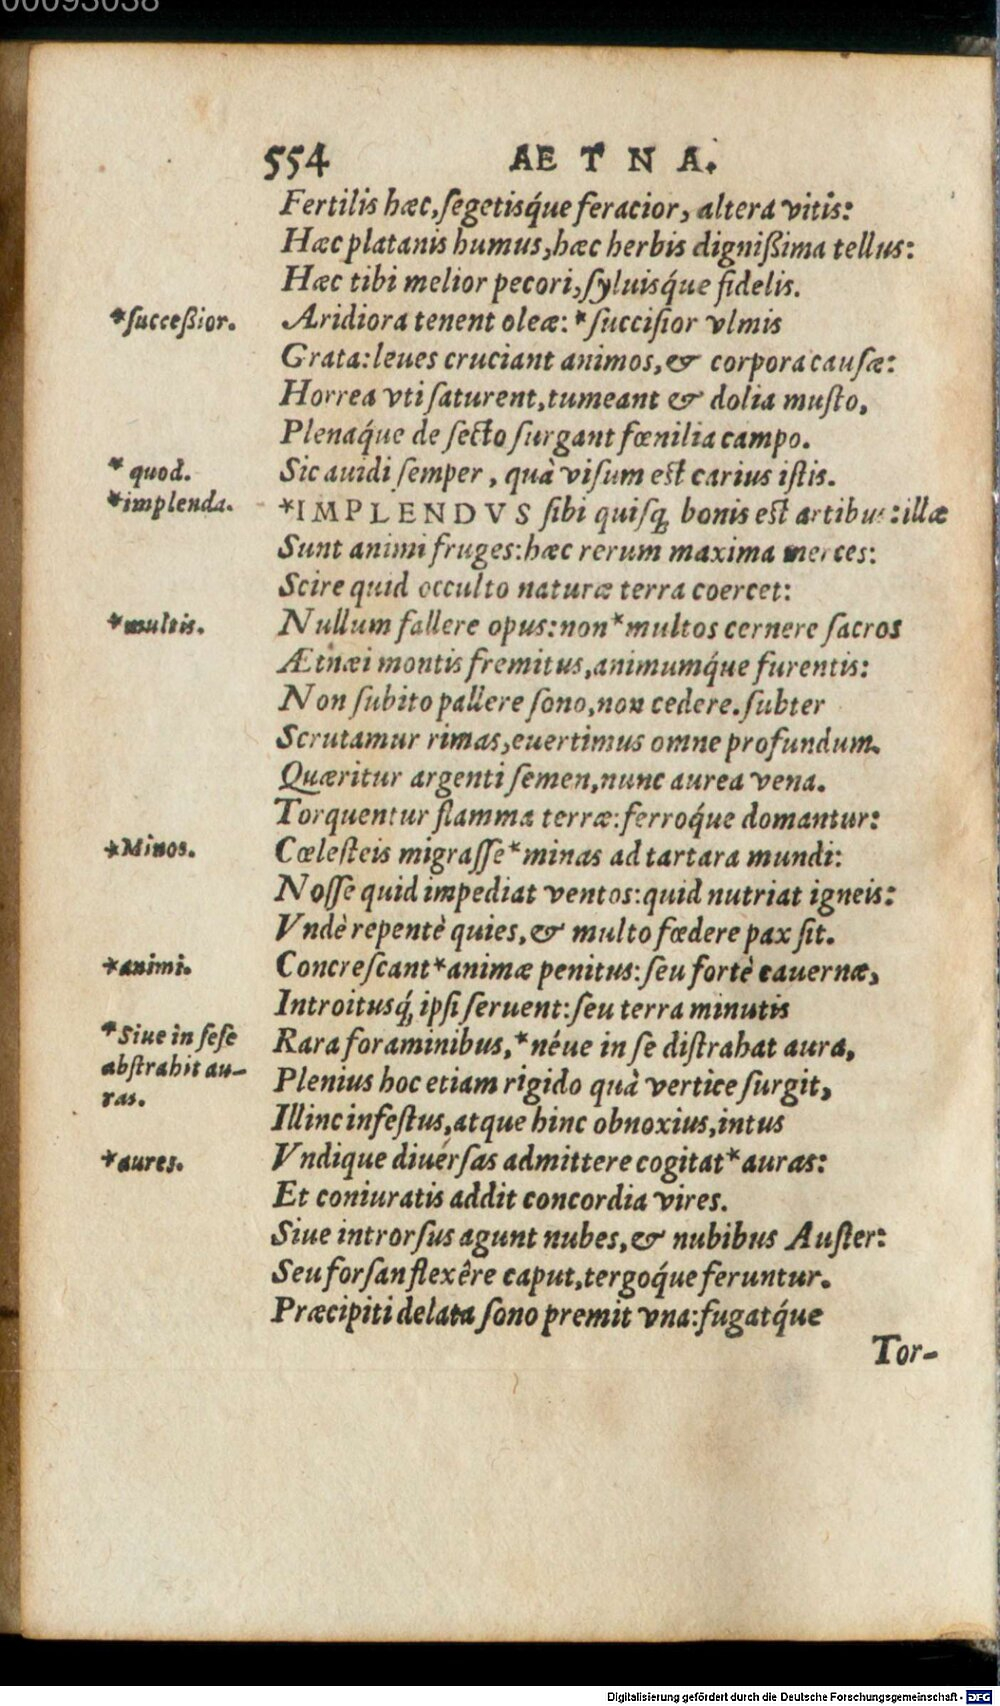 00093038
554 AETNA.
Fertilis hæc, ſegetisq́ue feracior, altera vitis:
Hæc platanis humus, hæc herbis digniſsima tellus:
Hæc tibi melior pecori, ſyluisq́ue fidelis.
*ſucceſsior. Aridiora tenent oleæ: *ſucciſior vlmis
Grata: leues cruciant animos, & corpora cauſæ:
Horrea vti ſaturent, tumeant & dolia muſto,
Plenaq́ue de ſecto ſurgant fœnilia campo.
*quod. Sic auidi ſemper, quà viſum eſt carius iſtis.
*implenda. *IMPLENDVS ſibi quiſq; bonis eſt artibus: illæ
Sunt animi fruges: hæc rerum maxima merces:
Scire quid occulto naturæ terra coercet:
*multis. Nullum fallere opus: non *multos cernere ſacros
Ætnæi montis fremitus, animumq́ue furentis:
Non ſubito pallere ſono, non cedere. ſubter
Scrutamur rimas, euertimus omne profundum.
Quæritur argenti ſemen, nunc aurea vena.
Torquentur flamma terræ: ferroq́ue domantur:
*Minos. Cœleſteis migraſſe *minas ad tartara mundi:
Noſſe quid impediat ventos: quid nutriat igneis:
Vndè repentè quies, & multo fœdere pax ſit.
*animi. Concreſcant *animæ penitus: ſeu fortè cauernæ,
Introitusq́; ipſi ſeruent: ſeu terra minutis
*Siue in ſeſe Rara foraminibus, *néue in ſe diſtrahat aura,
abſtrahit au- Plenius hoc etiam rigido quà vertice ſurgit,
ras. Illinc infeſtus, atque hinc obnoxius, intus
*aures. Vndique diuérſas admittere cogitat *auras:
Et coniuratis addit concordia vires.
Siue introrſus agunt nubes, & nubibus Auſter:
Seu forſan flexêre caput, tergoq́ue feruntur.
Præcipiti delata ſono premit vna: fugatq́ue
Tor-
Digitalisierung gefördert durch die Deutsche Forschungsgemeinschaft - DFG